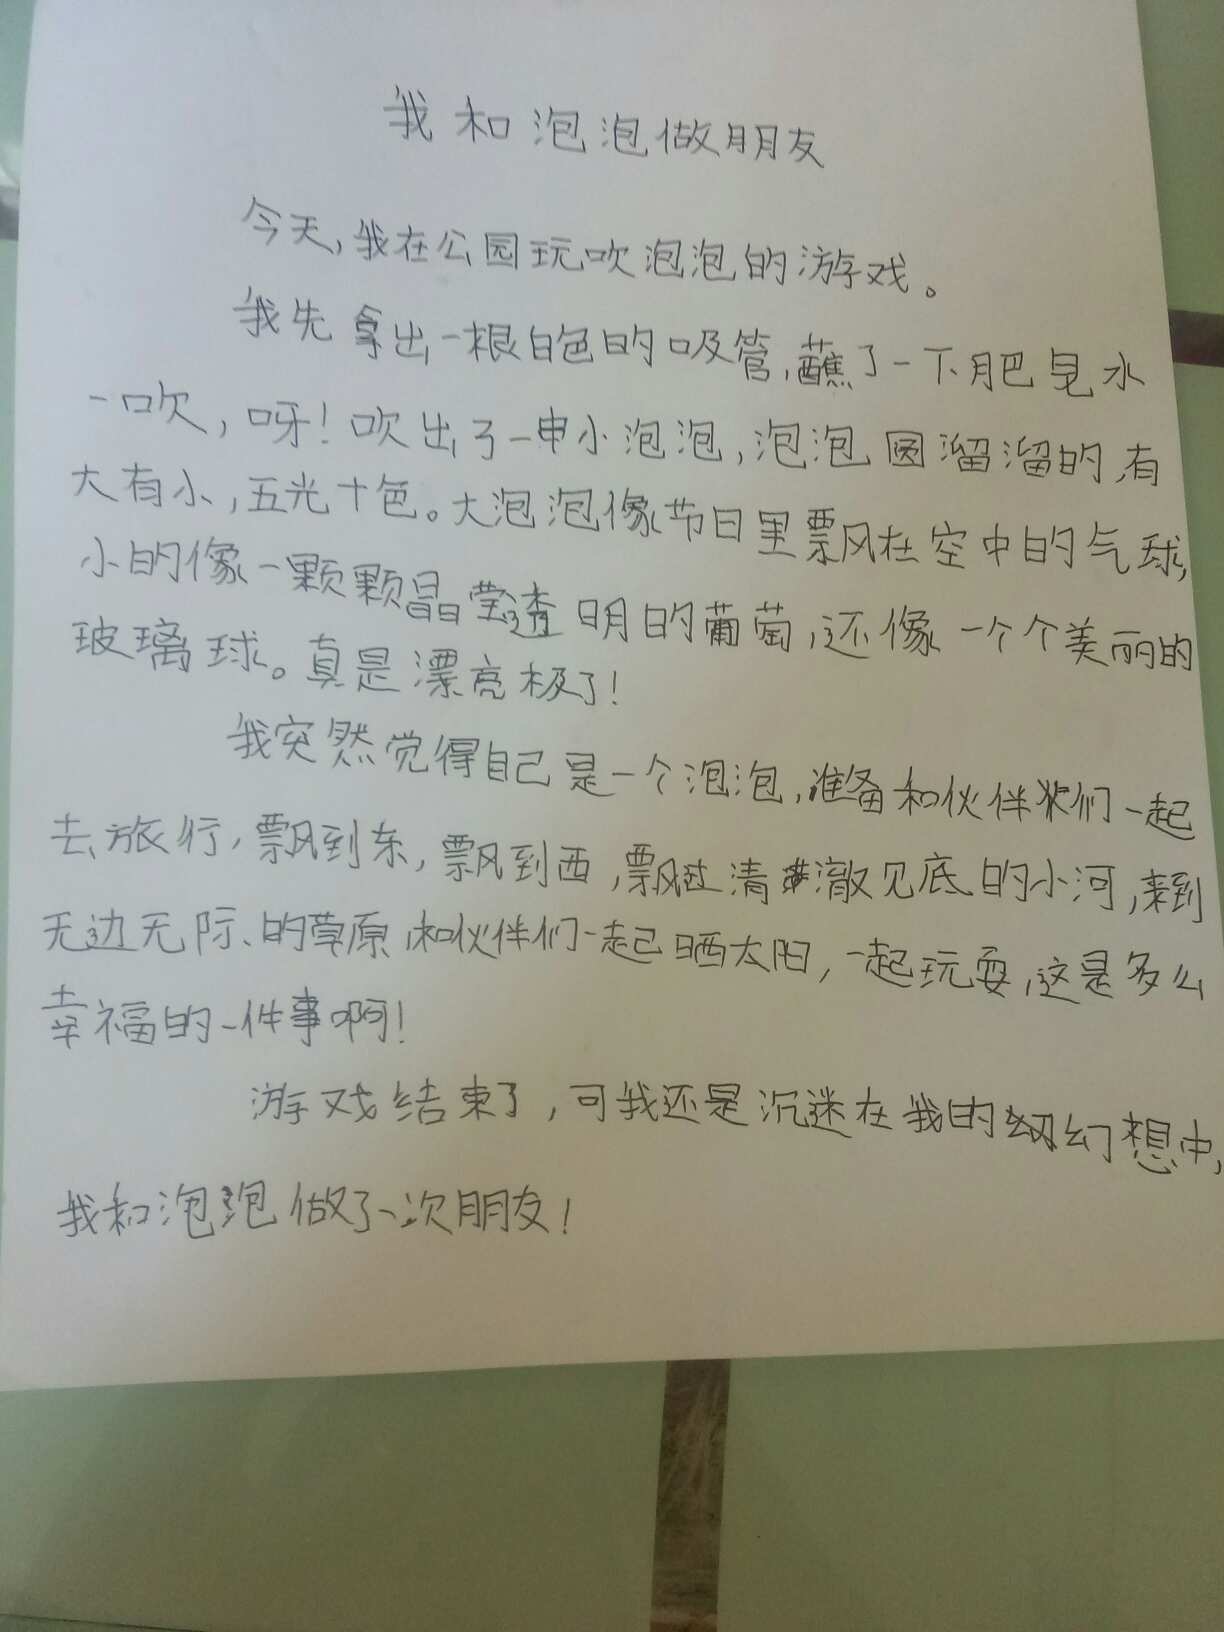 我和泡泡做朋友
今天,我在公园玩吹泡泡的游戏。
我先拿出一根白色的吸管,蘸了一下肥皂水
一吹,呀!吹出了一串小泡泡,泡泡圆溜溜的,有
大有小,五光十色。大泡泡像节日里飘在空中的气球,
小的像一颗颗晶莹透明的葡萄,还像一个个美丽的
玻璃球。真是漂亮极了!
我突然觉得自己是一个泡泡,准备和伙伴们一起
去旅行,飘到东,飘到西,飘过清澈见底的小河,来到
无边无际、的草原,和伙伴们一起晒太阳,一起玩耍,这是多么
幸福的一件事啊!
游戏结束了,可我还是沉迷在我的幻想中,
我和泡泡做了一次朋友!